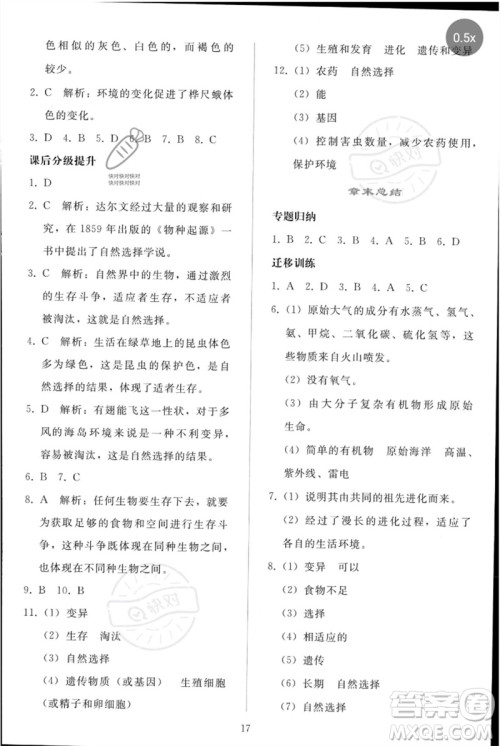 色相似的灰色、白色的，而褐色的
较少。
2. C　解析：环境的变化促进了桦尺蛾体
色的变化。
3. D　4. B　5. D　6. B　7. B　8. C
课后分级提升
1. D
2. C　解析：达尔文经过大量的观察和研
究，在 1859 年出版的《物种起源》一
书中提出了自然选择学说。
3. C　解析：自然界中的生物，通过激烈
的生存斗争，适应者生存，不适应者
被淘汰，这就是自然选择。
4. C　解析：生活在绿草地上的昆虫体色
多为绿色，这是昆虫的保护色，是自
然选择的结果，体现了适者生存。
5. D　解析：有翅能飞这一性状，对于多
风的海岛环境来说是不利变异，容易
被淘汰，这是自然选择的结果。
6. B　7. C
8. A　解析：任何生物要生存下去，就要
为获取足够的食物和空间进行生存斗
争，这种斗争出现在不同生物之间，
也体现在同种生物之间。
9. B　10. B
11.（1）变异
（2）生存　淘汰
（3）自然选择
（4）遗传物质（或基因）　生殖细胞
（或精子和卵细胞）
（5）生殖和发育　进化　遗传和变异
12.（1）农药　自然选择
（2）能
（3）基因
（4）控制害虫数量，减少农药使用，
保护环境
章末总结
专题归纳
1. B　2. C　3. B　4. C　5. B　6. D
迁移训练
1. A　2. D　3. B　4. A　5. C
6.（1）原始大气的成分有水蒸气、氢气、
氨、甲烷、二氧化碳、硫化氢等，这
些物质来自火山喷发。
（2）没有氧气。
（3）由大分子复杂有机物形成原始
生命。
（4）简单的有机物　原始海洋　高温、
紫外线、雷电
7.（1）说明其由共同的祖先进化而来。
（2）经过了漫长的进化过程，适应各自
的生活环境。
8.（1）变异　可以
（2）食物不足
（3）生存斗争
（4）适应的
（5）遗传
（6）长期　自然选择
（7）自然选择
17
0.5x
快对
快对
快对快对快对
快对快对快对
答案圈
MXQE.COM